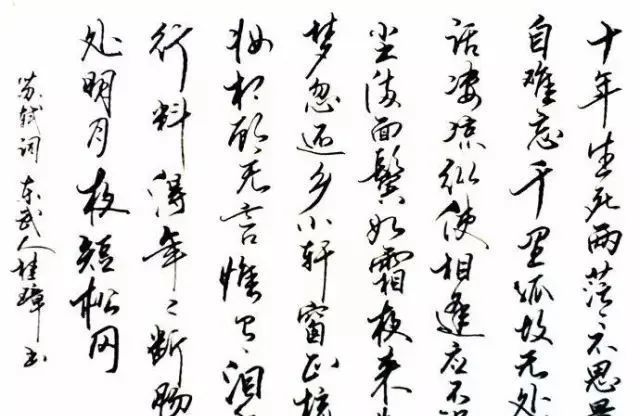 十年生死两茫〻不思量
自难忘千里孤坟无处
话凄凉纵使相逢应不
尘满面鬓如霜夜来
梦忽还乡小轩窗正梳
妆相顾无言惟有泪
行料得年〻断肠
处明月夜短松冈
苏轼词 东武人桂璋书